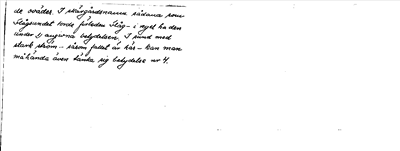 de svåder. I skärgårdsnamn sådana som
Slågsundet torde förleden Slåg- i regel ha den
under 1) angivna betydelsen. I sund med
stark ström - såsom fallet är här - kan man
måhända även tänka sig betydelse nr 4.